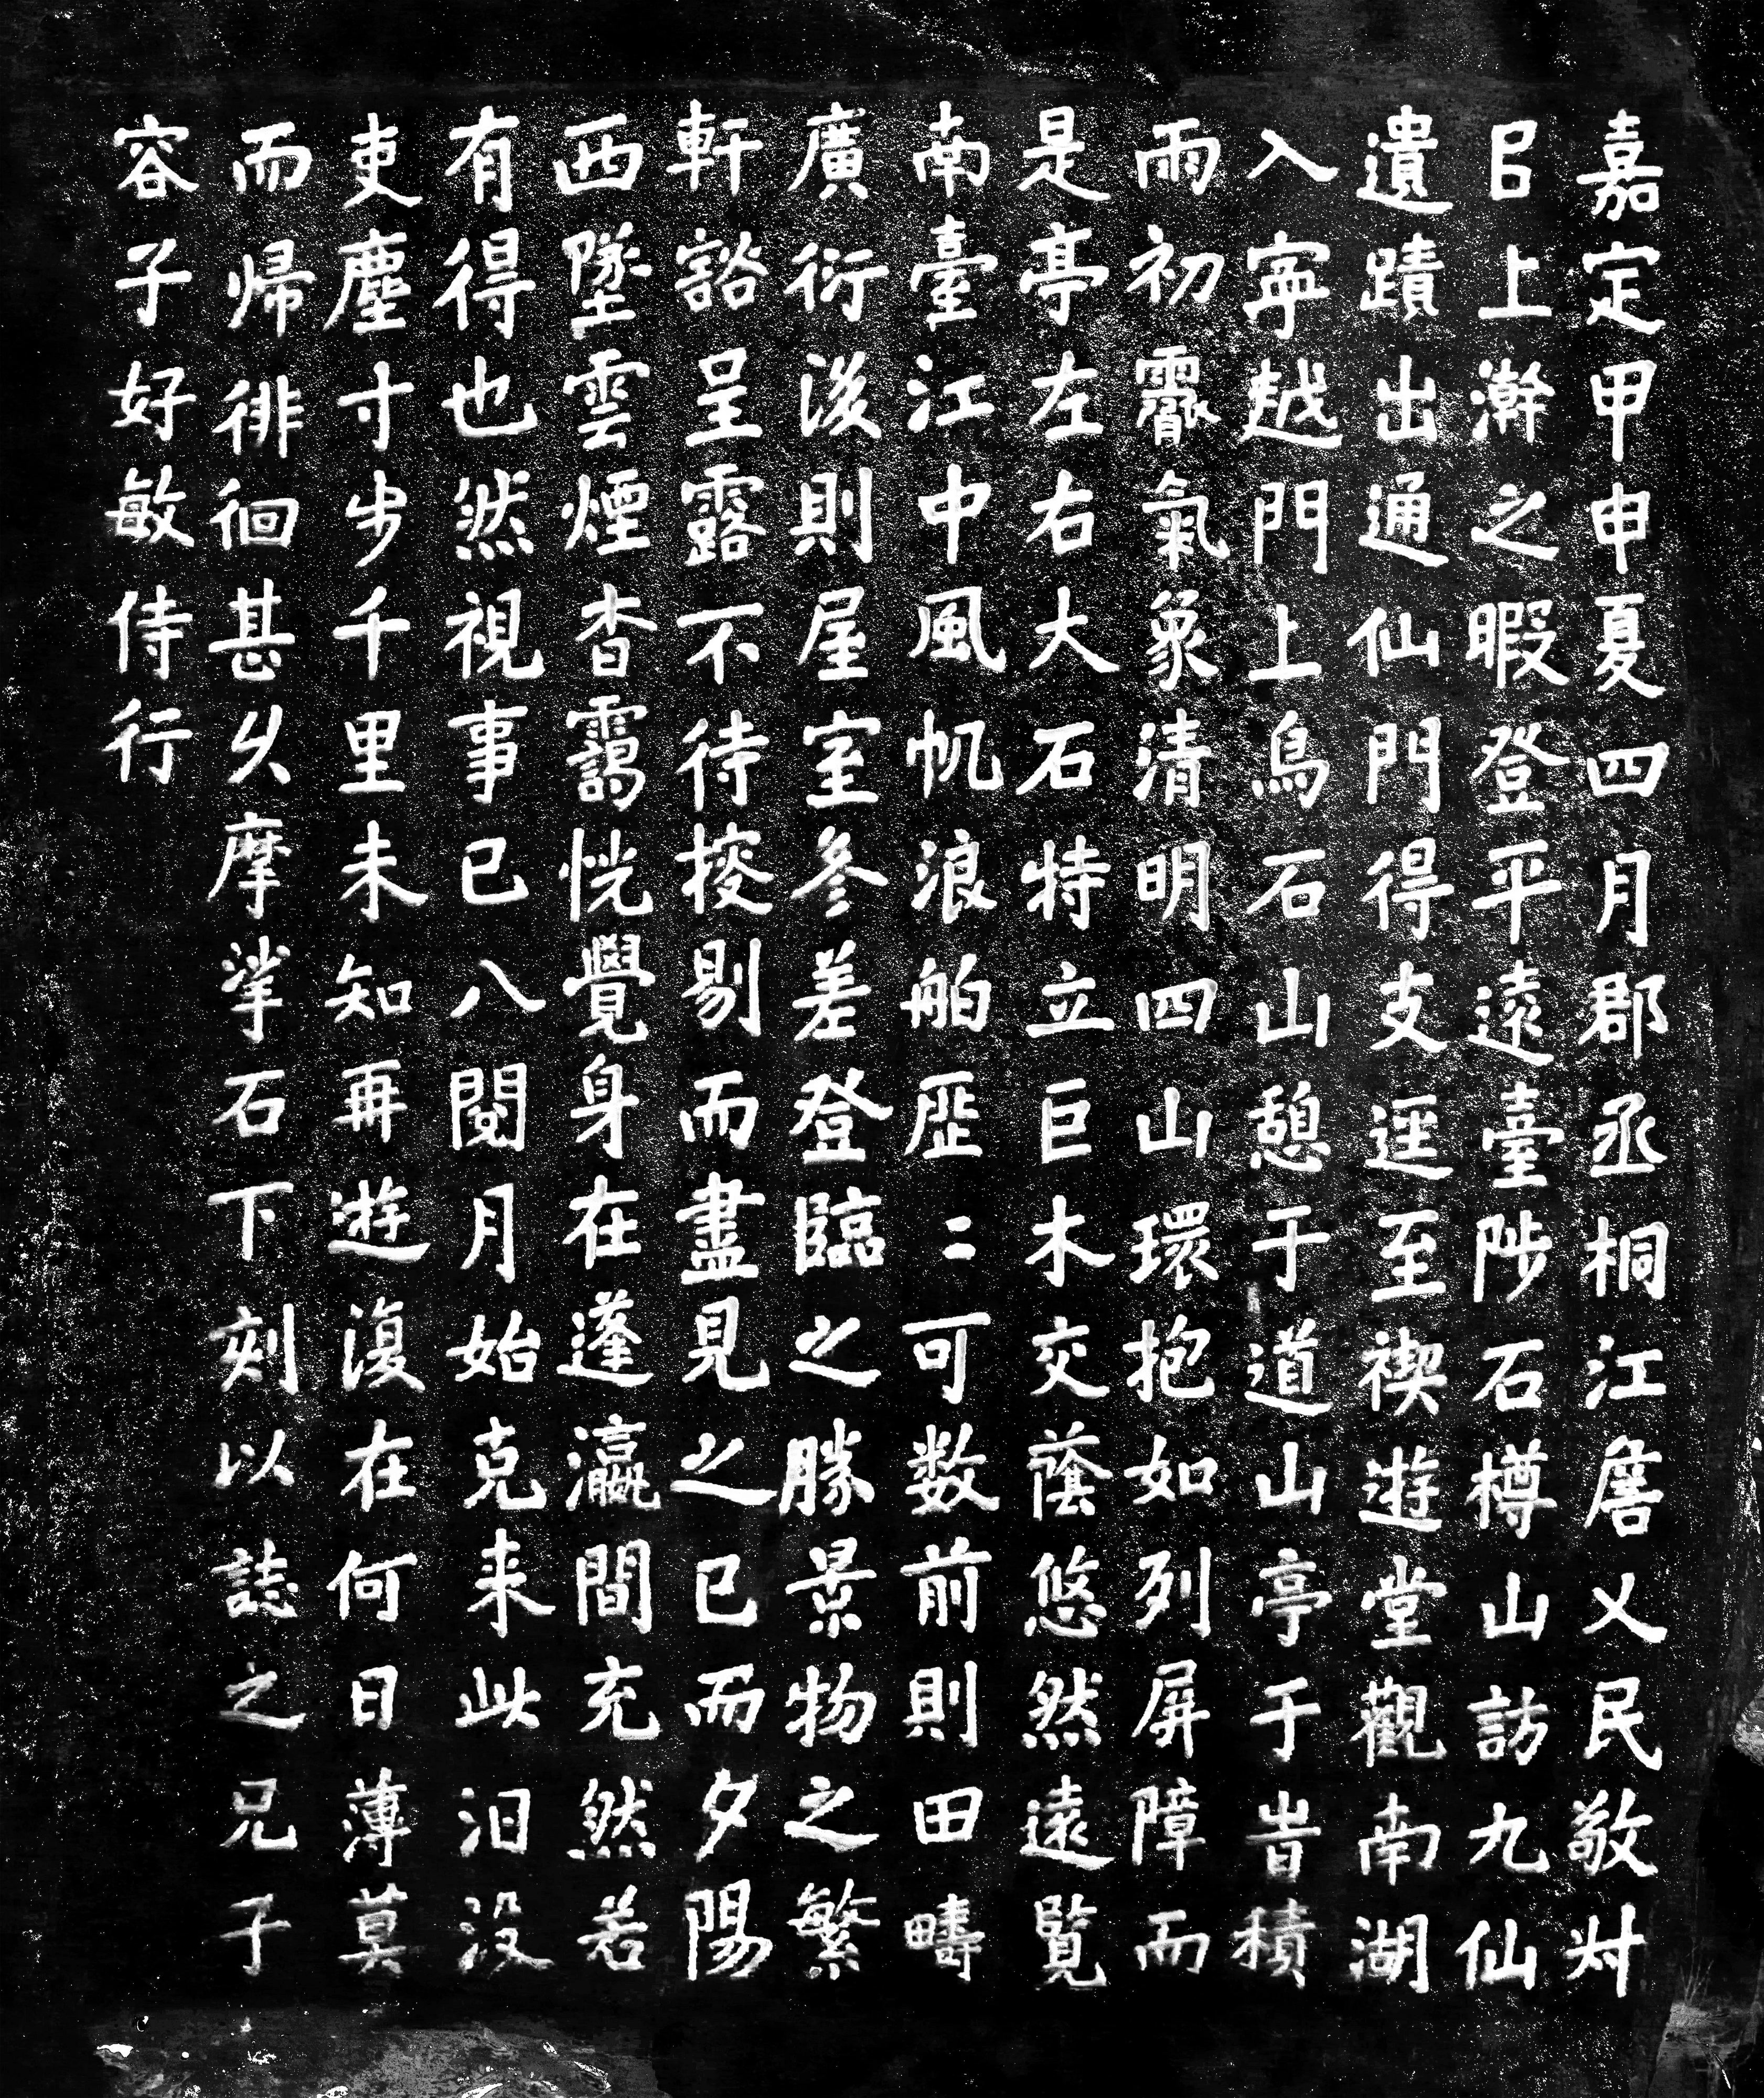 嘉定甲申夏四月郡丞桐江詹乂民敬叔
㠯上澣之暇登平遠臺陟石樽山訪九仙
遺蹟出通仙門得支逕至禊遊堂觀南湖
入寧越門上烏石山憩于道山亭于旹積
雨初霽氣象清明四山環抱如列屏障而
是亭左右大石特立巨木交蔭悠然遠覧
南臺江中風帆浪舶歷〻可数前則田疇
廣衍後則屋室參差登臨之勝景物之繁
軒豁呈露不待搜剔而盡見之已而夕陽
西墜雲煙杳靄恍覺身在蓬瀛間充然若
有得也然視事已八閱月始克来此汩没
吏塵寸步千里未知再遊復在何日薄莫
而帰徘徊甚久摩挲石下刻以誌之兄子
容子好敏侍行